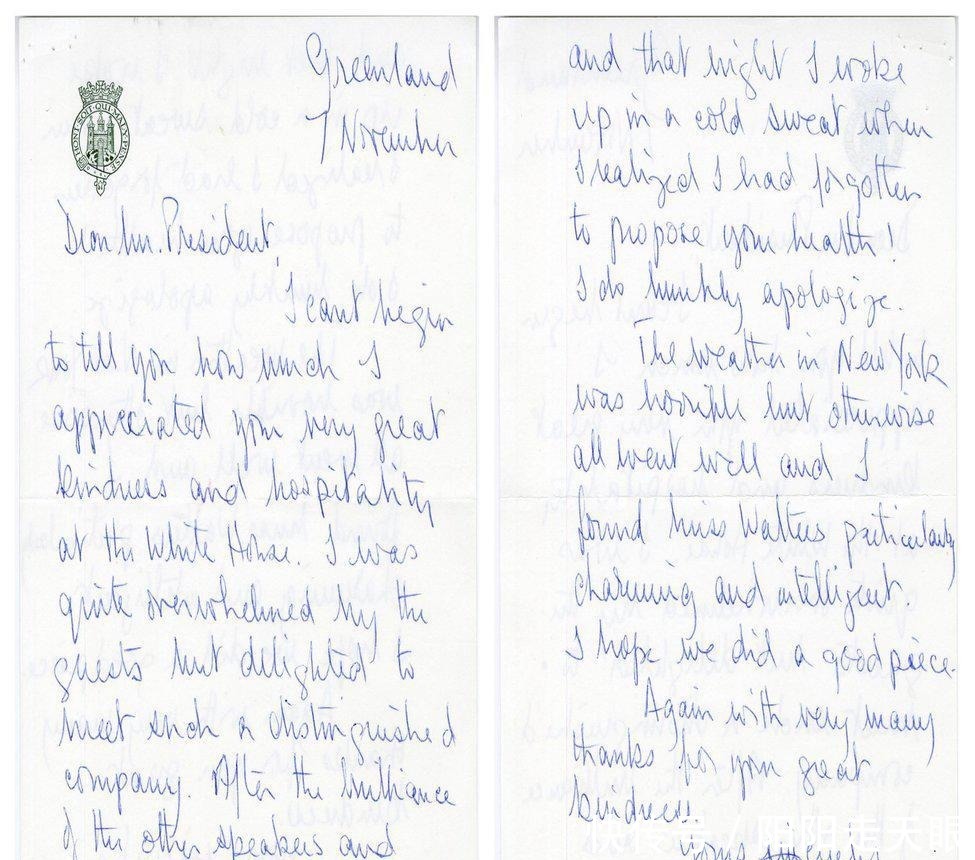 HONI SOIT QUI MAL Y PENSE
Greenland
7 November
Dear Mr. President,
I can't begin
to tell you how much I
appreciated your very great
kindness and hospitality
at the White House. I was
quite overwhelmed by the
guests but delighted to
meet such a distinguished
company. After the brilliance
of the other speakers and
and that night I woke
up in a cold sweat when
I realized I had forgotten
to propose your health!
I do humbly apologize.
The weather in New York
was horrible but otherwise
all went well and I
found Miss Walters particularly
charming and intelligent.
I hope we did a good piece.
Again with very many
thanks for your great
kindness.
Yours sincerely
阳阳走天眼